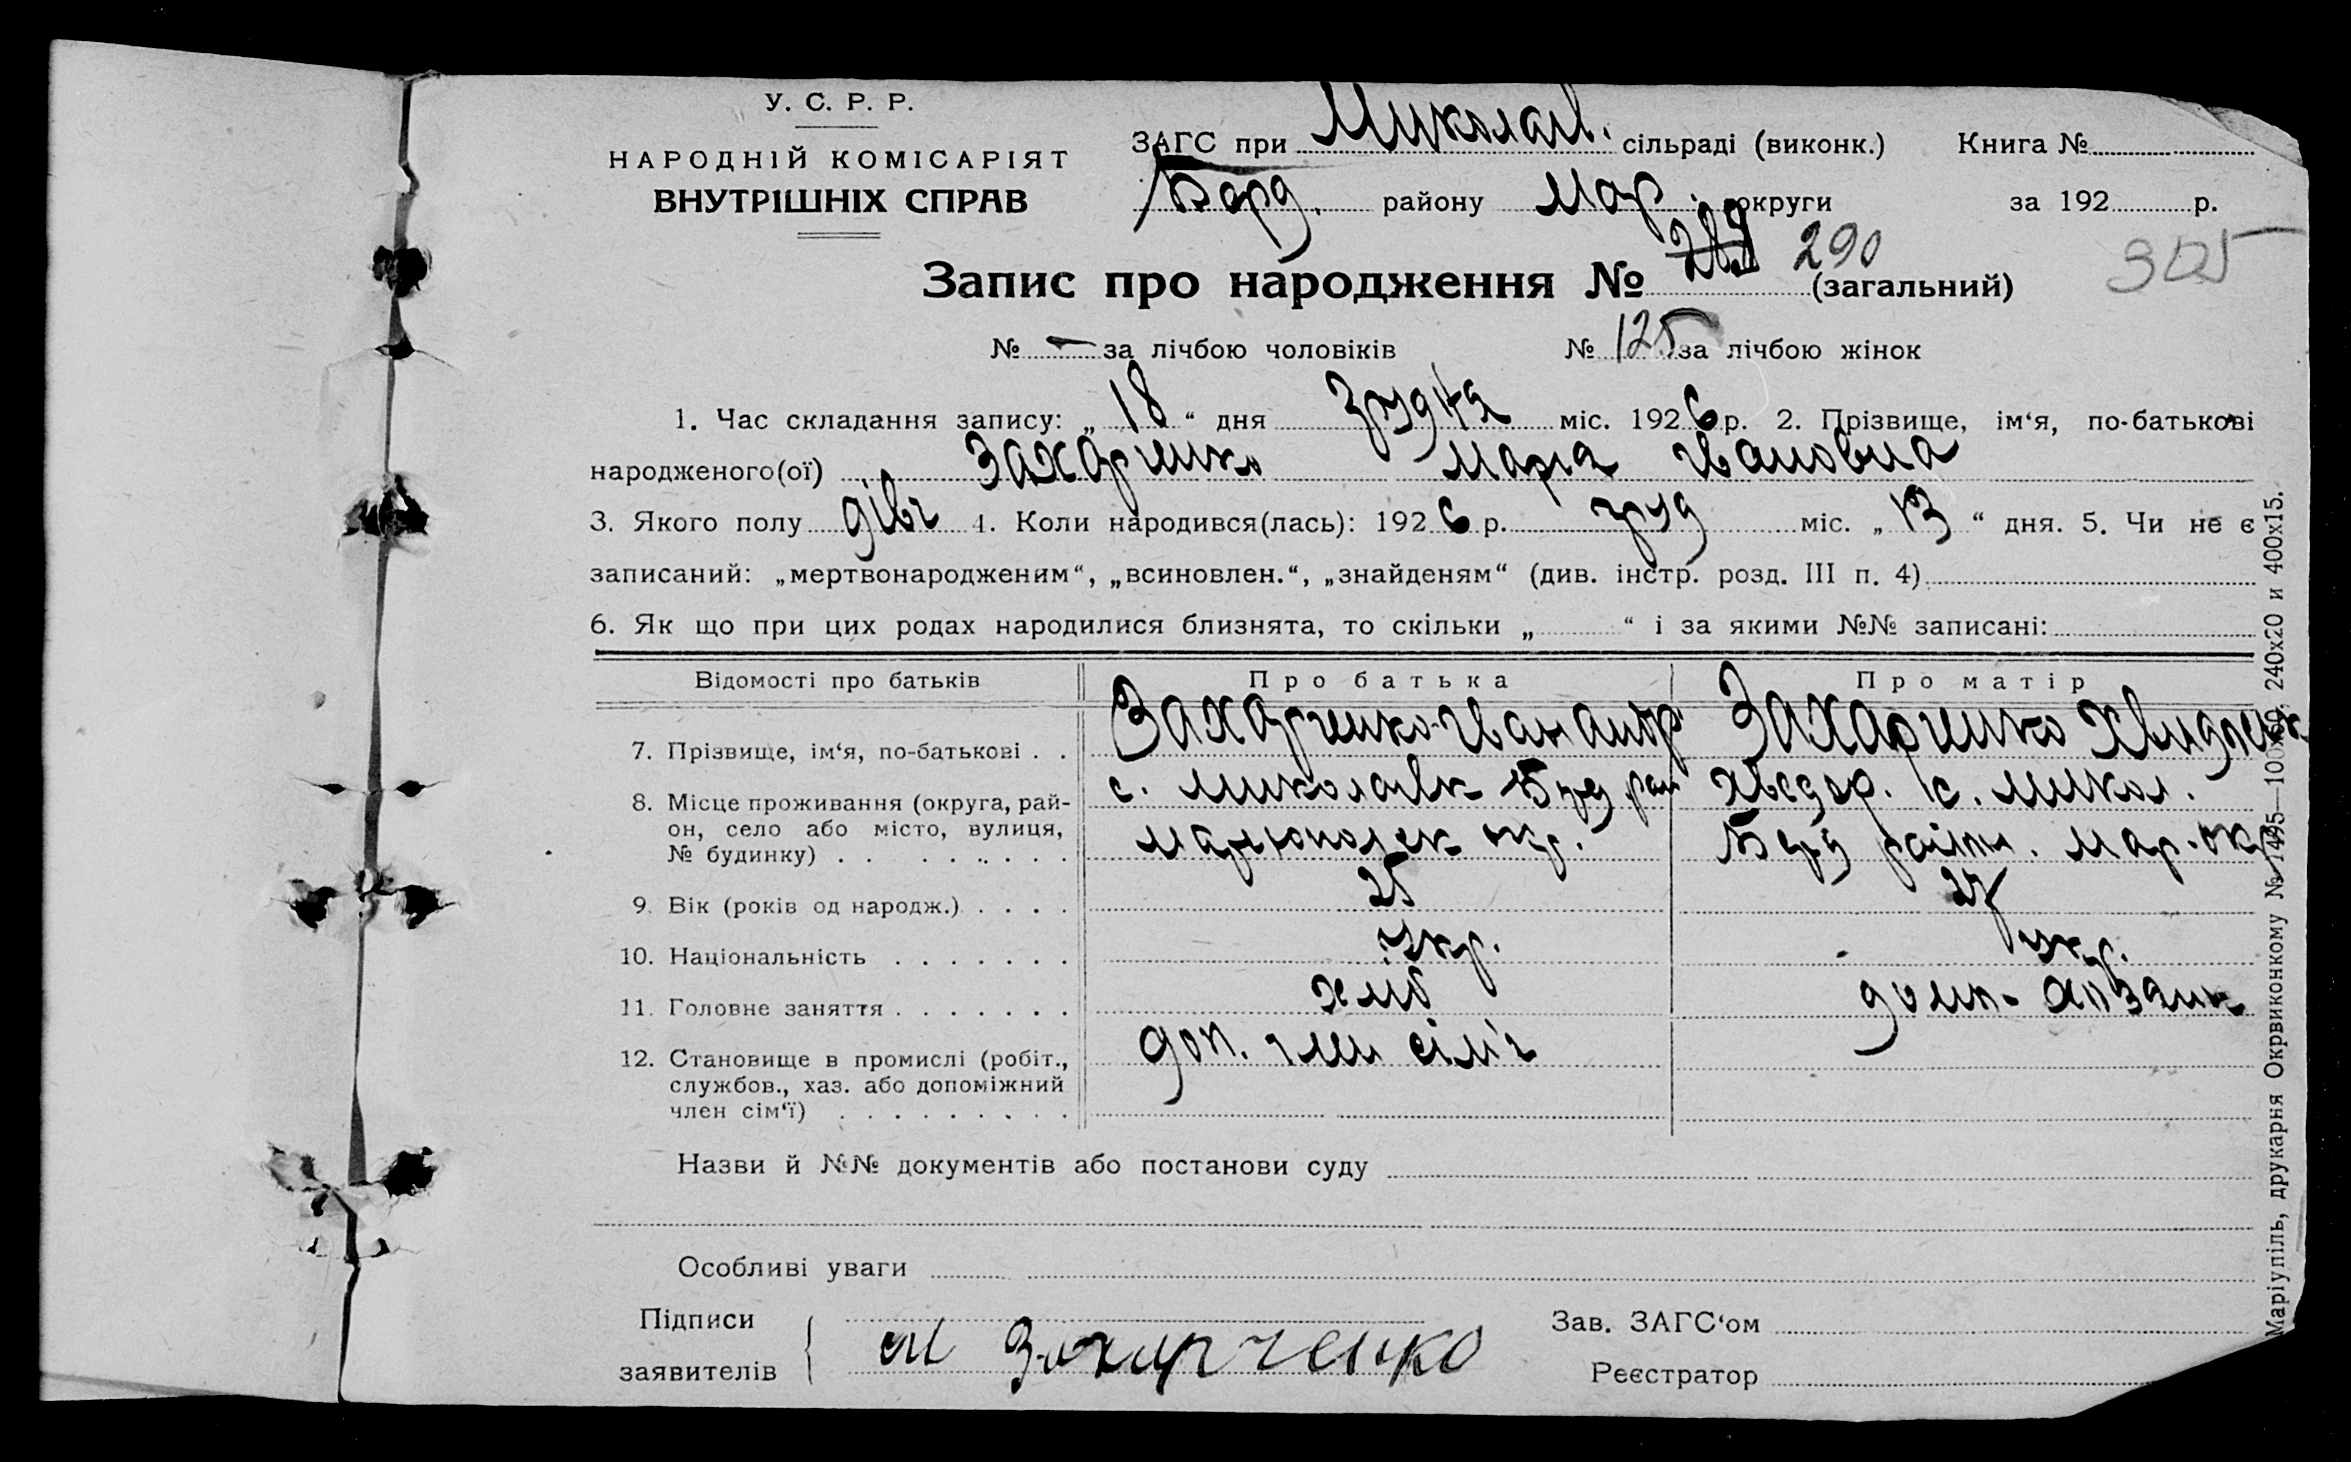 У. С. Р. Р.
НАРОДНІЙ КОМІСАРІЯТ
ВНУТРІШНІХ СПРАВ
ЗАГС при Миколаїв. сільраді (виконк.) Книга №
Берд. району Мар. округи за 192 р.
Запис про народження № 289 290 (загальний)
№ — за лічбою чоловіків № 125 за лічбою жінок
1. Час складання запису: „ 18 “ дня грудня міс. 1926 р. 2. Прізвище, ім‘я, по-батькові
народженого(ої) Захарченко Марія Івановна
3. Якого полу дівч 4. Коли народився(лась): 1926 р. груд міс. „ 13 “ дня. 5. Чи не є
записаний: „мертвонародженим“, „всиновлен.“, „знайденям“ (див. інстр. розд. III п. 4)
6. Як що при цих родах народилися близнята, то скільки „ “ і за якими №№ записані:
Відомості про батьків Про батька Про матір
7. Прізвище, ім‘я, по-батькові . . Захарченко Іван Андр Захарченко
8. Місце проживання (округа, рай-он, село або місто, вулиця, № будинку) с. Миколаївк Берд. рай Хведор. с. Микол.
Маріюпольск окр. Берд району. Мар. окр
9. Вік (років од народж.) . . . . 25 27
10. Національність . . . . . . . Укр. укр.
11. Головне заняття . . . . . . . хліб домо-хозяйк
12. Становище в промислі (робіт., службов., хаз. або допоміжний член сім‘ї) доп. член сімї
Назви й №№ документів або постанови суду
Особливі уваги
Підписи
заявителів М Захарченко
Зав. ЗАГС‘ом
Реєстратор
Маріупіль, друкарня Окрвиконкому № 1495—100х60. 240х20 и 400х15.